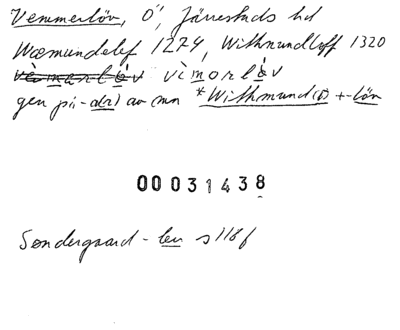 Vemmerlöv, Ö, Järrestads hd
Wæmundelef 1274, Withmundloff 1320
vèmarlòv vèmorlòv
gen på -a(r) av mn *Withmund(r) + -löv
00031438
Søndergaard - lev s 118 f